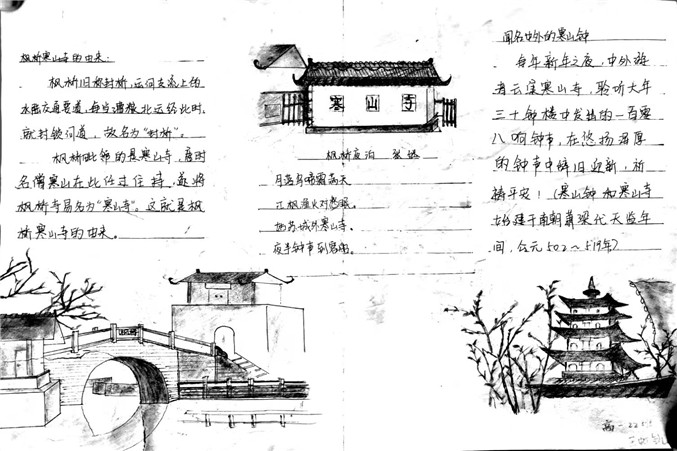 枫桥寒山寺的由来:
枫桥旧称封桥,运河支流上的
水陆交通要道,每当漕粮北运经此时,
就封锁河道,故名为"封桥"。
枫桥毗邻的是寒山寺,唐时
名僧寒山在此住过住持,遂将
枫桥寺易名为"寒山寺"。这就是枫
桥寒山寺的由来。
寒山寺
枫桥夜泊 张继
月落乌啼霜满天
江枫渔火对愁眠。
姑苏城外寒山寺,
夜半钟声到客船。
枫桥
闻名中外的寒山钟
每年新年之夜,中外游
者云集寒山寺,聆听大年
三十钟楼中发出的一百零
八响钟声,在悠扬浑厚
的钟声中辞旧迎新,祈
祷平安!(寒山钟和寒山寺
始建于南朝萧梁代天监年
间,公元502~519年)
高一22